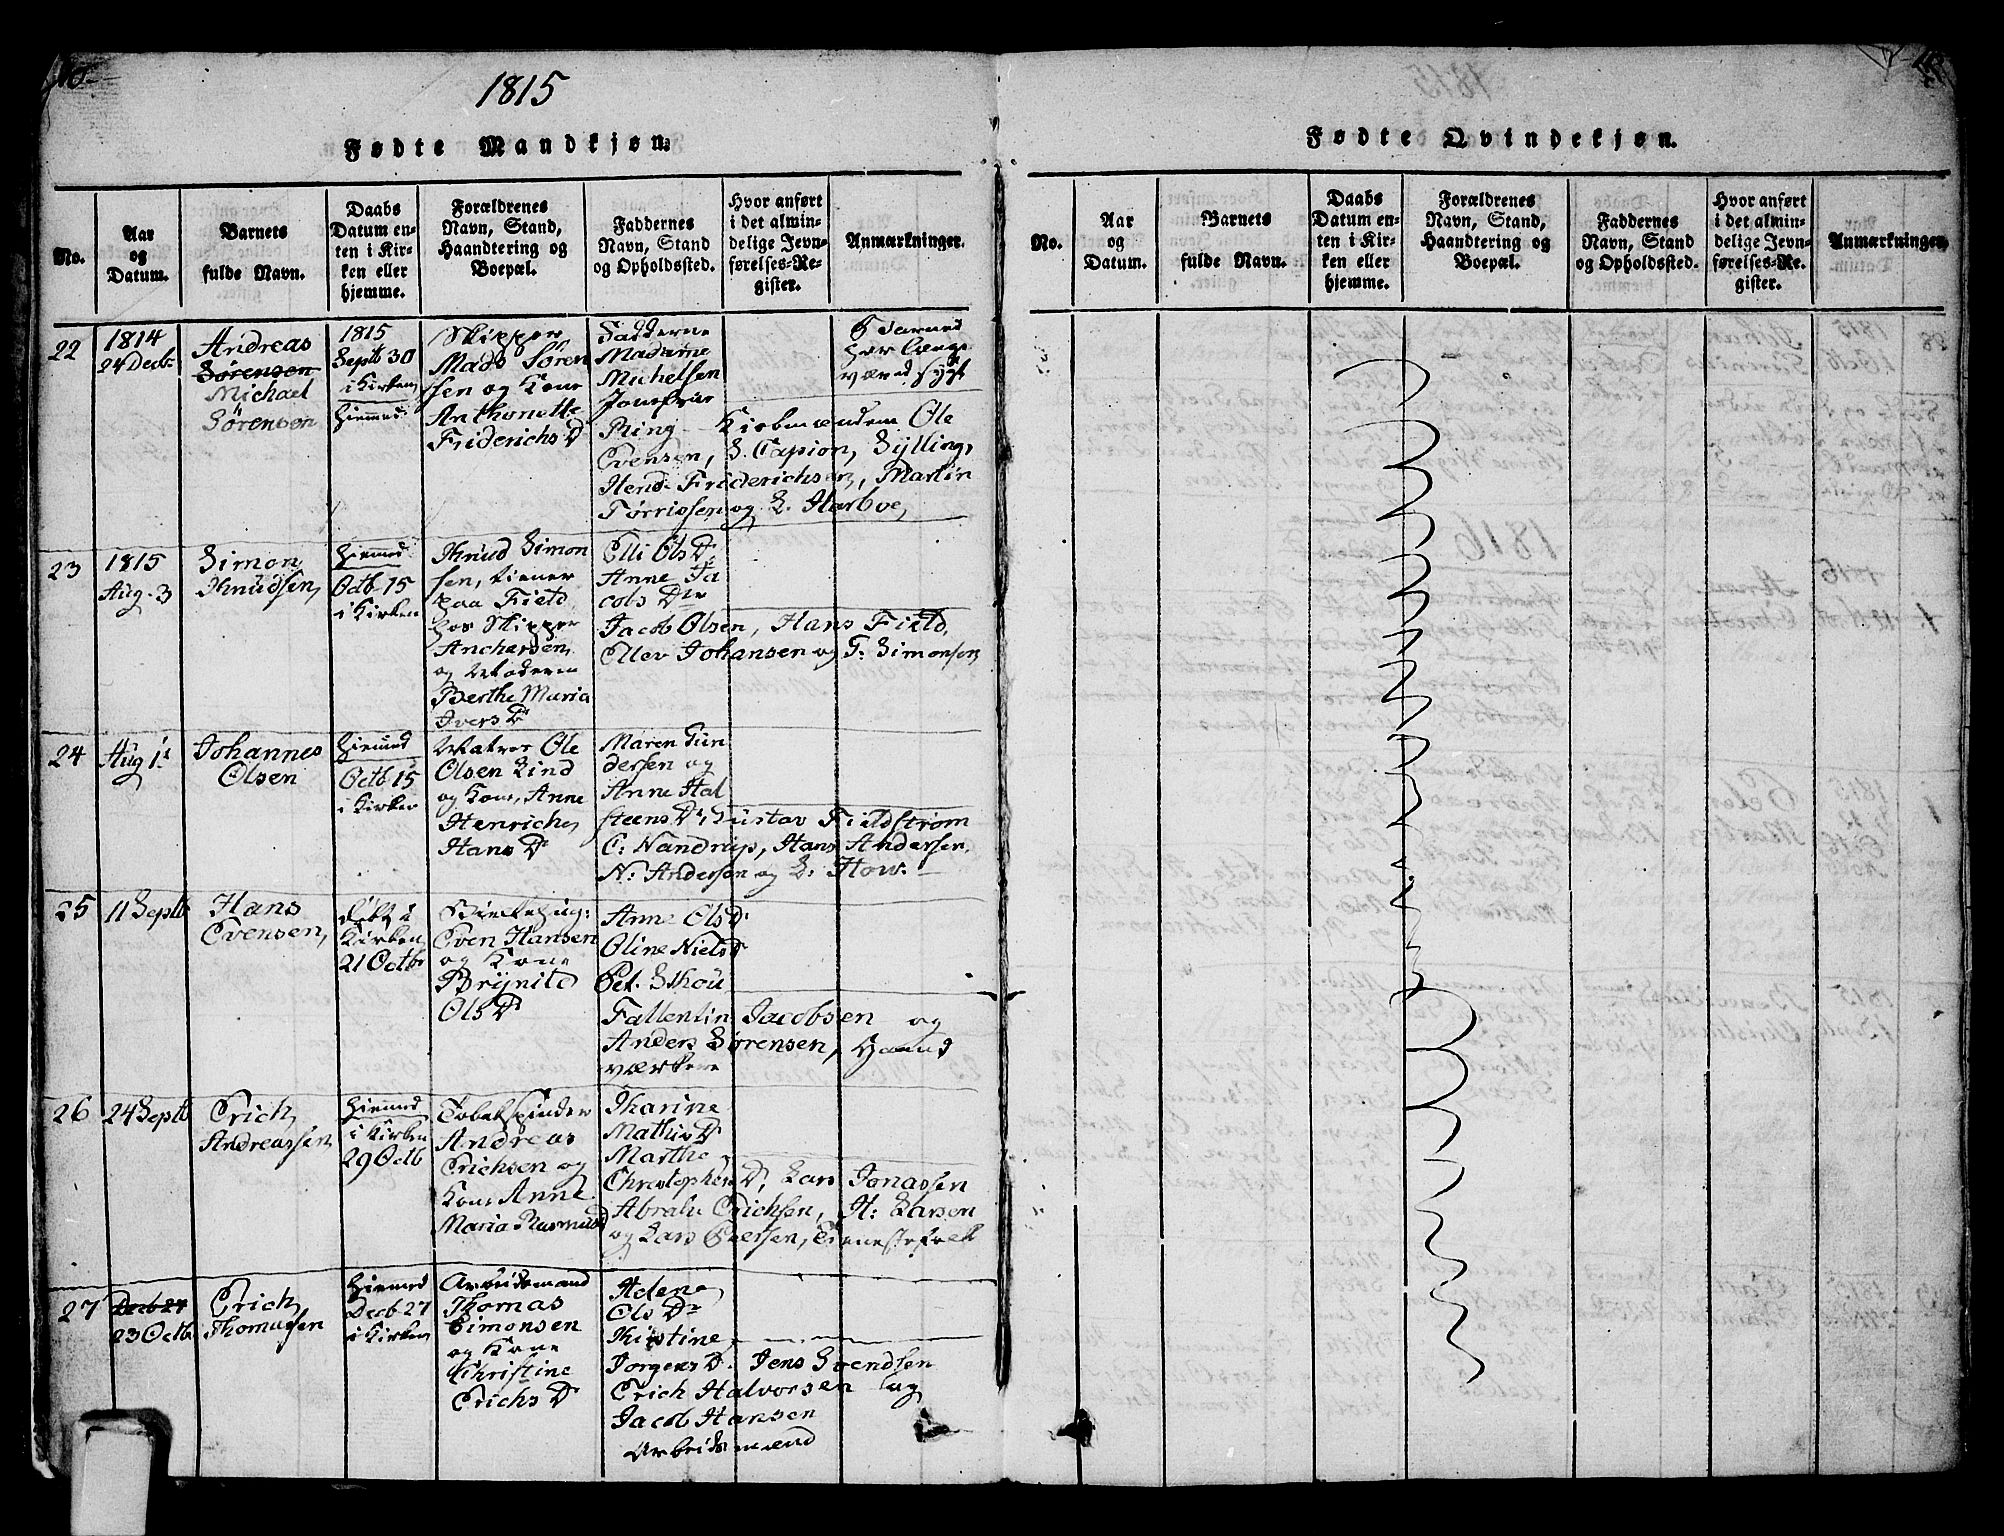 1815
Fødte Mandkjøn.
No.
Aar og Datum.
Barnets fulde Navn.
Daabs Datum enten i Kirken eller hjemme.
Forældrenes Navn, Stand, Haandtering og Boepæl.
Faddernes Navn, Stand og Opholdssted.
Hvor anført i det almindelige Jevnførelses-Register.
Anmærkninger.
22
1814
24 Decbr
Andreas
Sørensen
Michael
Sørensen
1815
Septb 30
i Kirken
Hiemed
Skipper
Mads Søren
sen og Kone
Anthonette
Friderichs Dr
Fadderne
Madame
Michelsen
Jomfrue
Ring Kiøbmændene Ole
Evensen, S. Capion, Sylling,
Hend. Friderichsen, Martin
Tørrissen og L. Harboe,
Barnet
har længe
været sygt
23
1815
Aug. 3
Simon
Knudsen,
Hiemed
Octb 15
i Kirken
Knud Simon
sen, tiener
paa Field
hos Skipper
Anchersen,
og Moderen
Berthe Maria
Ivers Dr
Elli Ols Dr
Anne Ja
cobs Dtr
Jacob Olsen, Hans Field,
Ellev Johansen og T: Simonsen
24
Aug 11
Johannes
Olsen
Hiemed
Octb 15
i Kirken
Matros Ole
Olsen Lind
og Kone, Anne
Henriche
Hans Dr
Maren Gun
dersen og
Anne Hal
steens Dr, Gustav Fieldstrøm
C: Nandrup, Hans Andersen,
N: Andersen og L: How.
25
11 Septb
Hans
Evensen,
døbt i
Kirken
21 Octbr
Even Hansen
og Kone
Brynild
Ols Dr
Anne Ols Dr
Oline Niels Dr
Pet. Skou
Fallentin Jacobsen og
Anders Sørensen, Haand
værkere
26
24 Septb
Erich
Andreassen
Hiemed
i Kirken
29 Octb
Andreas
Erichsen og
Kone Anne
Maria Rasmus Dr
Karine
Mathis Dr
Marthe
Christophers Dr, Lars Jonassen
Abrah: Erichsen, H: Larsen
og Lars Eversen, Tienestefolk
27
Decb 27
23 Octb
Erich
Thomassen
Hiemed
Decb 27
i Kirken
Arbeidsmand
Thomas
Simonsen
og Kone
Christine
Erichs Dr
Helene
Ols Dr
Kirstine
Jørgens Dr. Jens Svendsen
Erich Halvorsen og
Jacob Hansen
Arbeidsmænd
Fødte Qvindekjøn.
No.
Aar og Datum.
Barnets fulde Navn.
Daabs Datum enten i Kirken eller hjemme.
Forældrenes Navn, Stand, Haandtering og Boepæl.
Faddernes Navn, Stand og Opholdssted.
Hvor anført i det almindelige Jevnførelses-Register.
Anmærkninger.